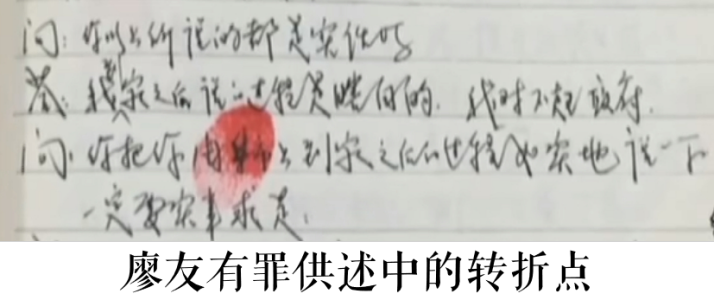 问：你以上所说的都是实话吗
答：我家之后说的过程是瞎编的. 我对不起政府.
问：你把你由上到家之后的过程如实地说一下
一定要实事求是.
廖友有罪供述中的转折点